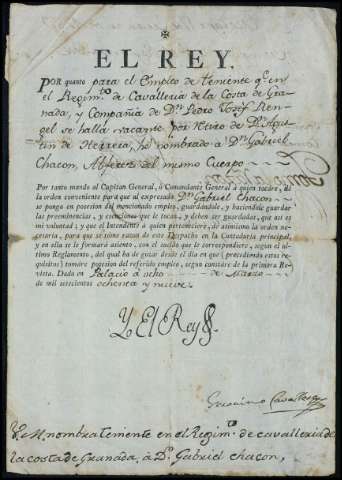 EL REY.
POR quanto para el Empleo de teniente q.e en
el Regim.to de Cavalleria de la Costa de Gra-
nada, y Compañia de D.n Pedro Josef Ren-
gel se halla vacante por Retiro de D.n Agus-
tin de Herrera, he nombrado a D.n Gabriel
Chacon, Alferez del mismo Cuerpo
Por tanto mando al Capitan General, ò Comandante General à quien tocáre, dé
la orden conveniente para que al expresado D.n Gabriel Chacon
se ponga en posesion del mencionado empleo, guardandole, y haciendole guardar
las preeminencias, y exenciones que le tocan, y deben ser guardadas, que asi es
mi voluntad; y que el Intendente à quien perteneciere, dé asimismo la orden ne-
cesaria, para que se tome razon de este Despacho en la Contaduría principal,
y en ella se le formará asiento, con el sueldo que le correspondiere, segun el ul-
timo Reglamento, del qual ha de gozar desde el dia en que (precediendo estos re-
quisitos) tomáre posesion del referido empleo, segun constáre de la primera Re-
vista. Dada en Palacio à ocho de Marzo
de mil setecientos ochenta y nueve.
Yo El Rey
Geronimo Cavallero
V.M. nombra teniente en el Regim.to de cavalleria de
la costa de Granada, à D.n Gabriel chacon,